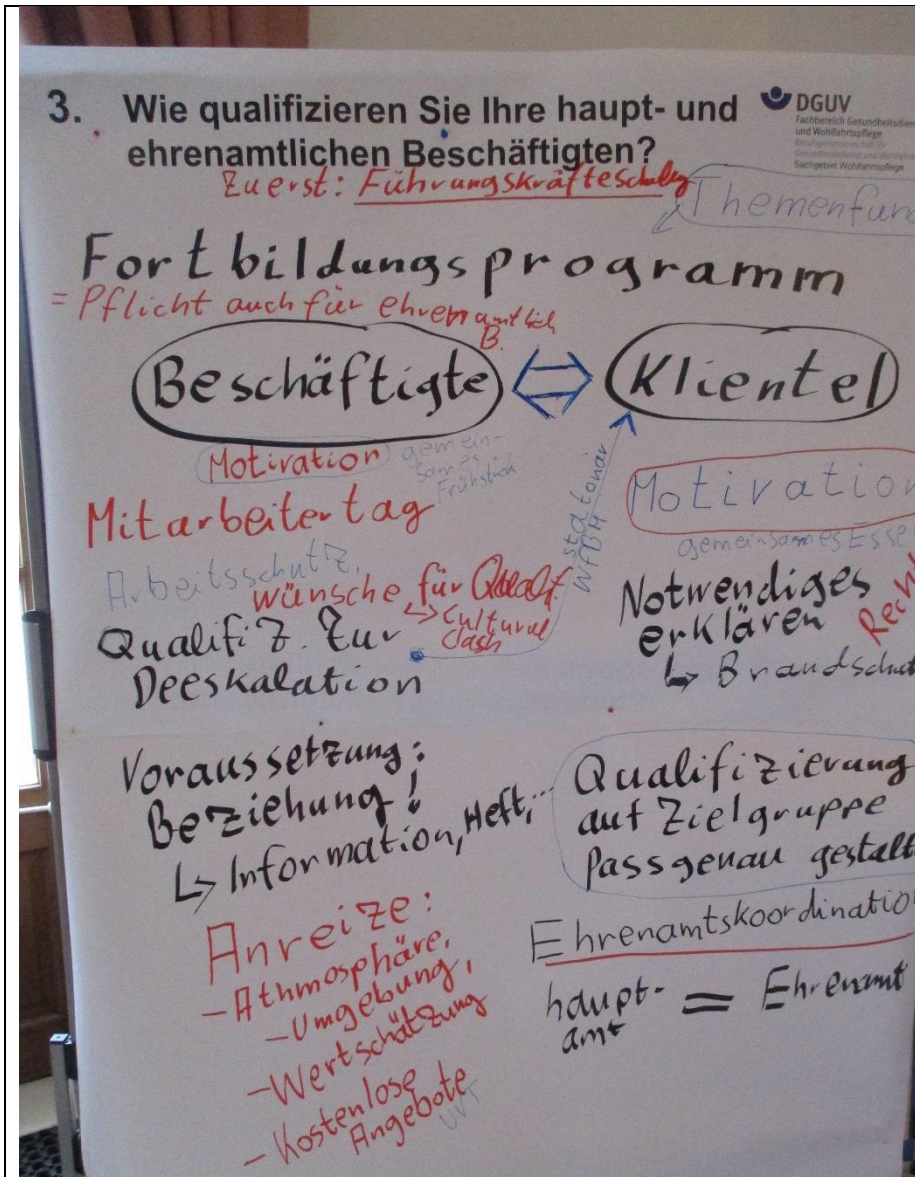 3. Wie qualifizieren Sie Ihre haupt- und
ehrenamtlichen Beschäftigten?
DGUV
Fachbereich Gesundheitsdien
und Wohlfahrtspflege
Sachgebiet Wohlfahrtspflege
Zuerst: Führungskräfteschulg
Themenfun
Fortbildungsprogramm
= Pflicht auch für ehrenamtlich
B.
Beschäftigte
Klientel
Motivation
gemein-
sames
Frühstück
Mitarbeitertag
stationär
WfBM
Motivation
gemeinsames Esse
Arbeitsschutz,
wünsche für Qualif.
↳ Cultural
clash
Qualifiz. zur
Deeskalation
Notwendiges
erklären
Rech
↳ Brandschut
Voraussetzung:
Beziehung!
↳ Information, Heft,...
Qualifizierung
auf Zielgruppe
Passgenau gestalt
Anreize:
- Athmosphäre,
- Umgebung,
- Wertschätzung
- Kostenlose
Angebote
UVT
Ehrenamtskoordinatio
haupt-
amt = Ehrenamt